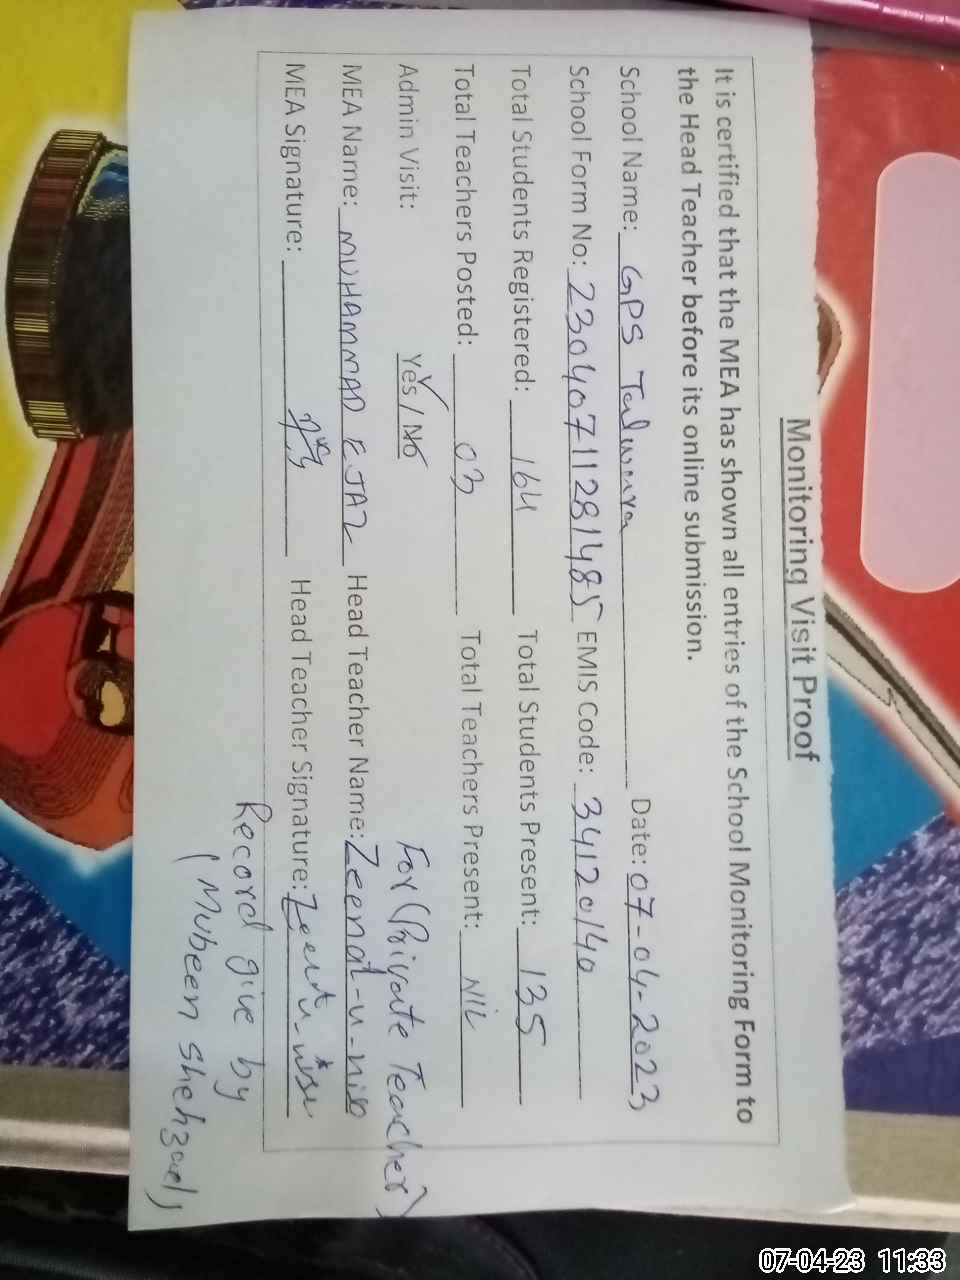 Monitoring Visit Proof
It is certified that the MEA has shown all entries of the School Monitoring Form to
the Head Teacher before its online submission.
School Name: GPS Talwara Date: 07-04-2023
School Form No: 23040711281485 EMIS Code: 34120140
Total Students Registered: 164 Total Students Present: 135
Total Teachers Posted: 03 Total Teachers Present: NIL
Admin Visit: Yes / No For (Private Teacher)
MEA Name: MUHAMMAD EJAZ Head Teacher Name: Zeenat-u-nis
MEA Signature: Head Teacher Signature:
Record give by
(Mubeen shehzad)
07-04-23 11:33